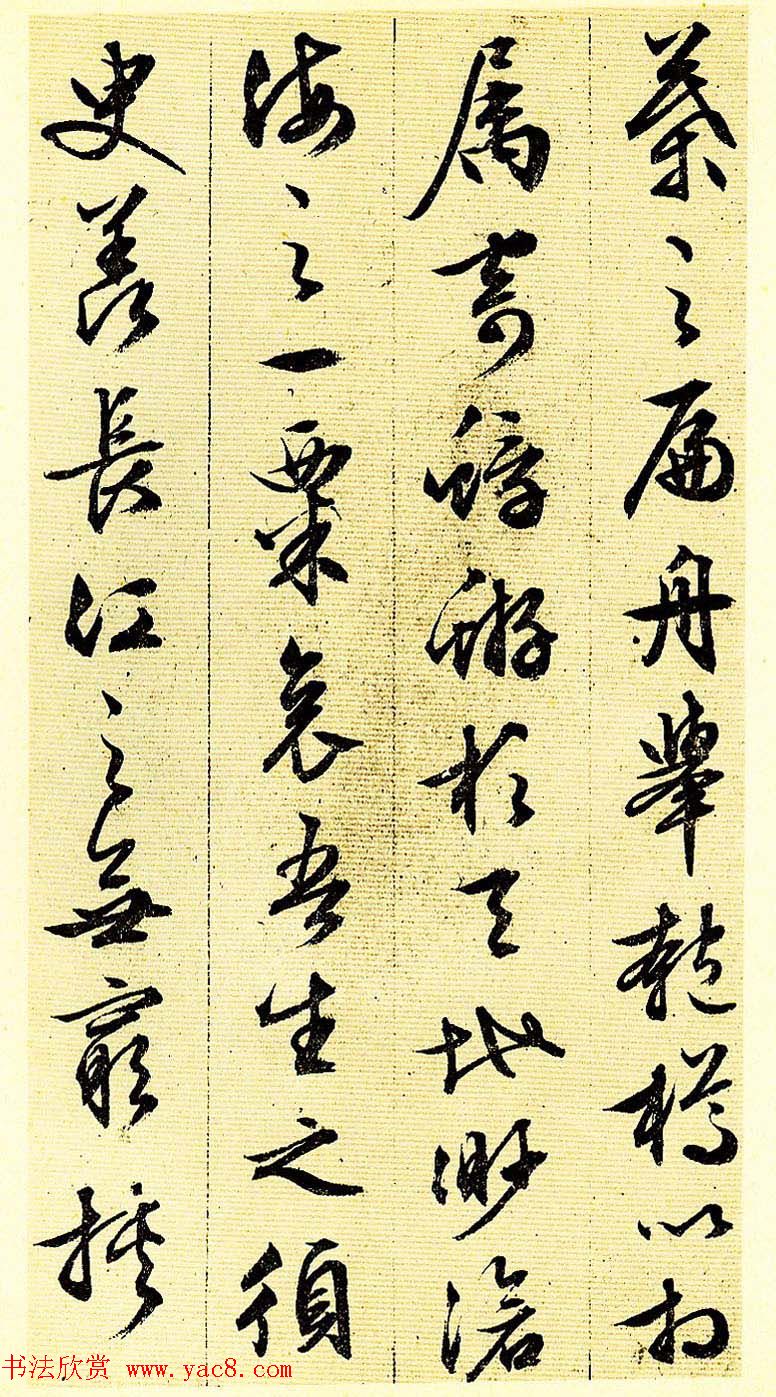 葉之扁舟舉匏樽以相
属寄蜉蝣於天地渺滄
海之一粟哀吾生之須
臾羨長江之無窮挾
书法欣赏 www.yac8.com